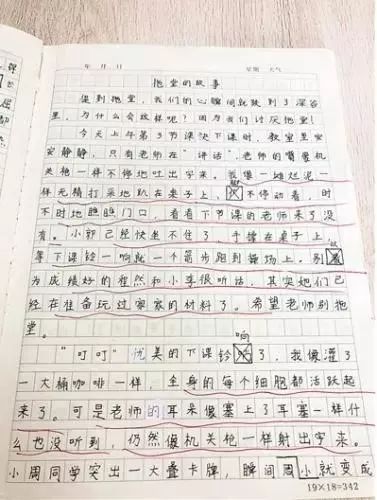 年 月 日 星期 天气
拖堂的故事
提到拖堂，我们的心瞬间就跌到了深谷
里，为什么会这样呢？因为我们讨厌拖堂！
今天上午第3节课快下课时，教室里安
安静静，只有老师在“讲话”，老师的嘴像机
关枪一样不停地吐出字来。我像一滩烂泥一
样无精打采地趴在桌子上，不停动着，时
不时地瞧瞧门口，看看下节课的老师来了没
有。小郭已经快坐不住了，手撑在桌子上，
等下课铃一响就一个箭步跑到操场上。别
为成绩好的崔然和小李很听话，其实她们已
经在准备玩过家家的材料了。希望老师别拖
堂。
响
“叮叮”优美的下课铃了，我像灌了
一大桶咖啡一样，全身的每个细胞都活跃起
来了。可是老师的耳朵像塞上了耳塞一样什
么也没听到，仍然像机关枪一样射出字来。
小周同学突出一大叠卡牌，瞬间周小就变成
19×18=342